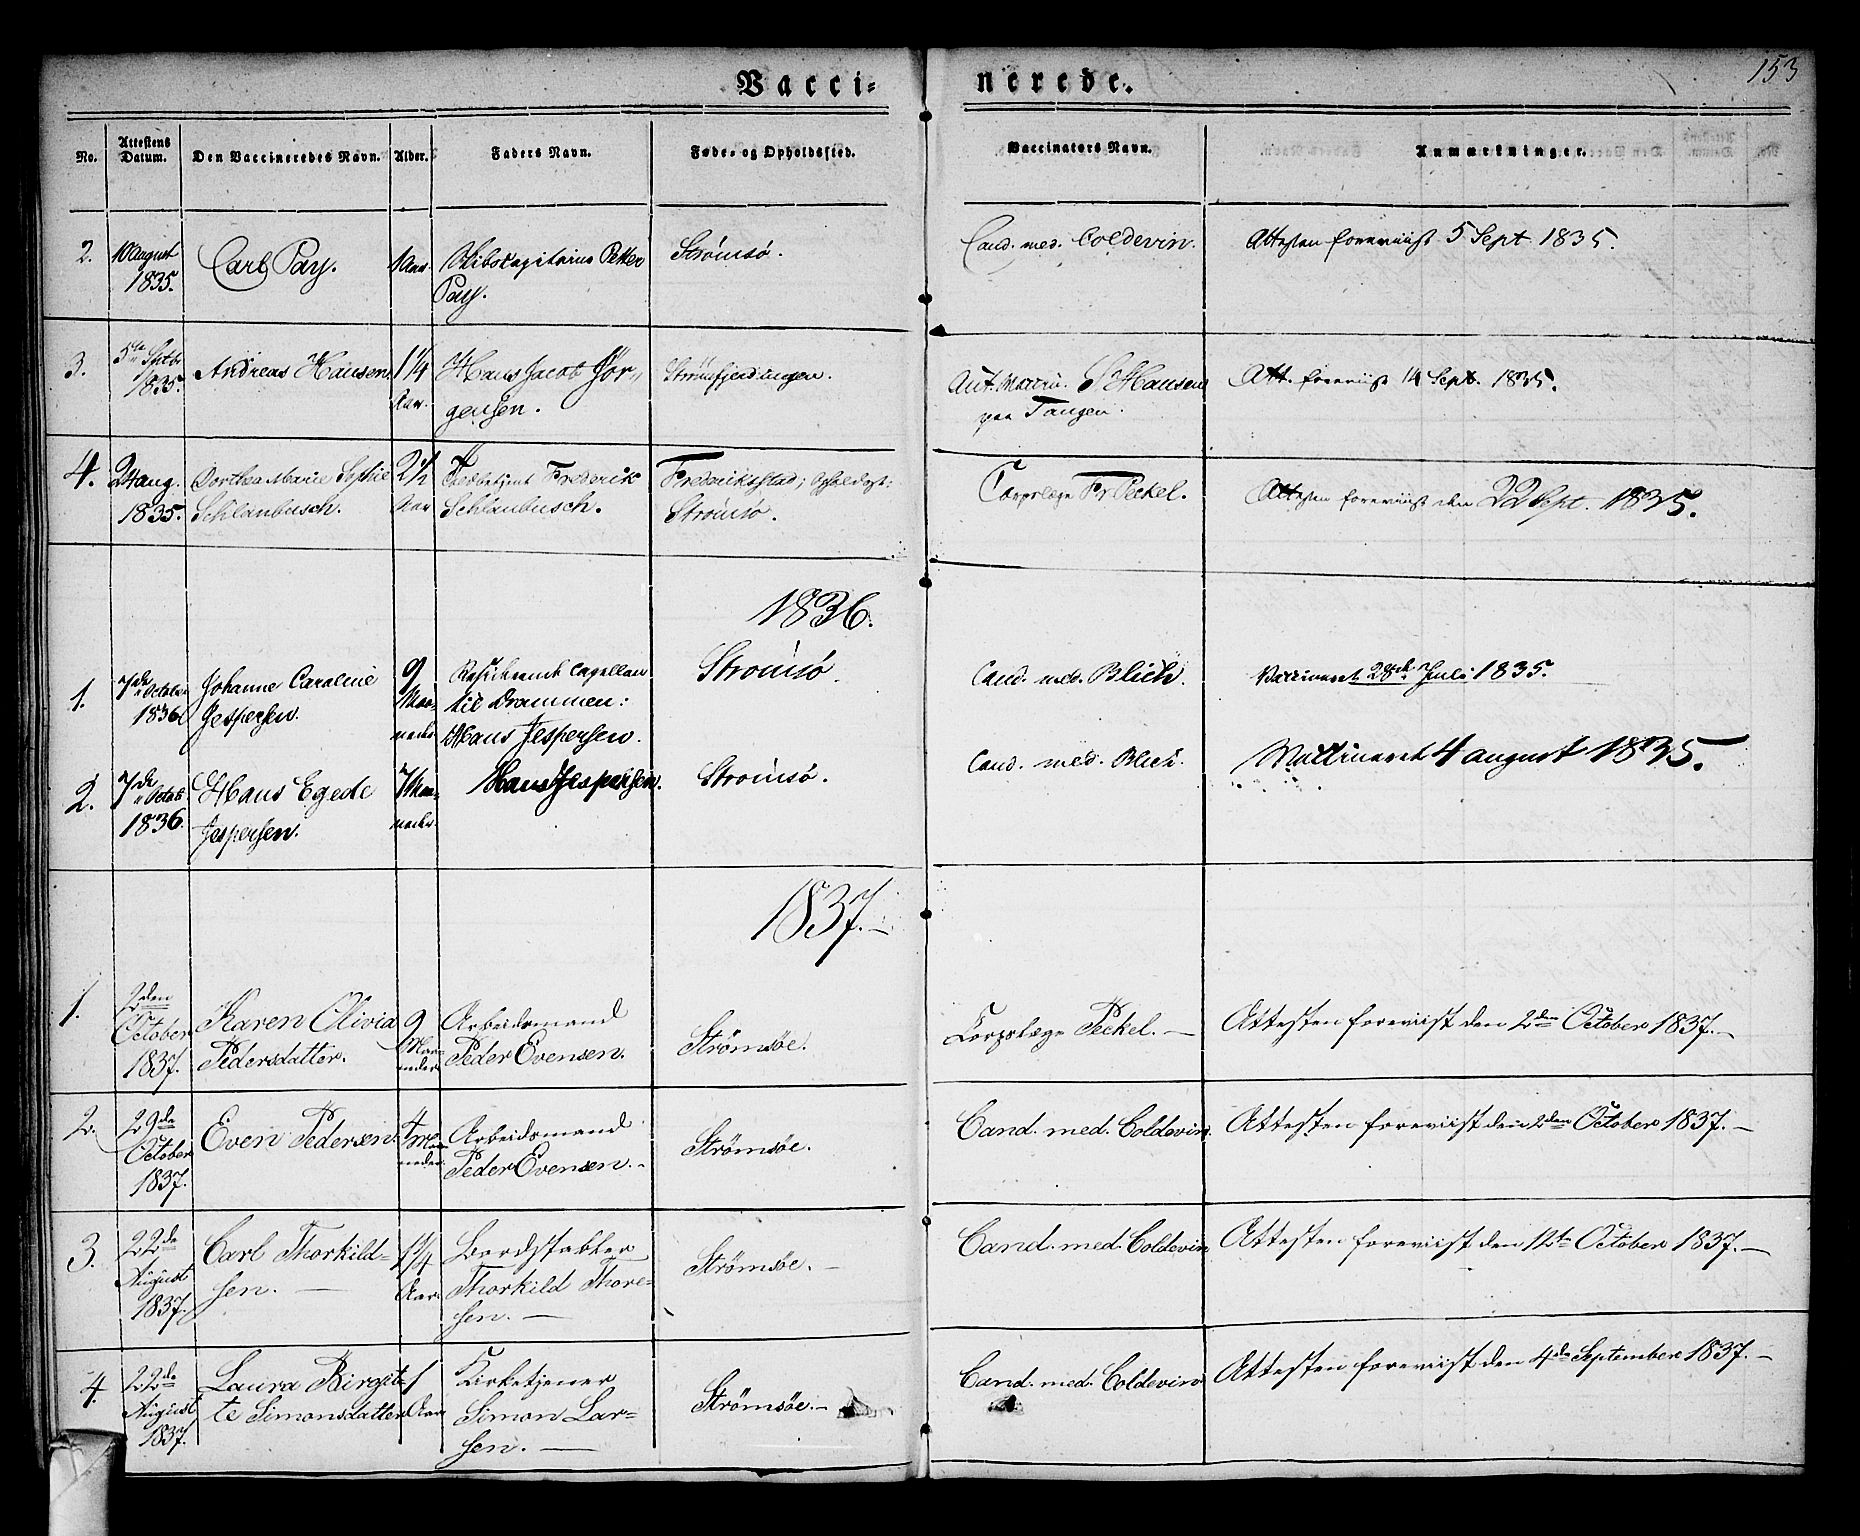 Vacci=
nerede.
153
No.
Attestens Datum.
Den Vaccineredes Navn.
Alder.
Faders Navn.
Føde- og Opholdssted.
Vaccinators Navn.
Anmærkninger.
2. 10 August Carl Pay. 1 Aar. Petter Strømsø. Cand. med. Coldevin. Attesten foreviist 5 Sept 1835.
1835. Pay.
3. 5te Septbr Andreas Hansen 1 1/4 Hans Jacob Jør= Strømsfjerdingen. S. Hansen Att. foreviist 14 Sept. 1835.
1835. Aar. gensen. paa Tangen.
4. 24 Aug. Dorthea Marie Sophie 2 1/2 Frederik Frederiksstad, Opholdsst: Corpslæge Fr Peckel. Attesten foreviist den 22 Sept. 1835.
1835. Schlanbusch. Aar Schlanbusch. Strömsö.
1836.
1. 7de October Johanne Caroline 9 Residerende Capellan Stromsö Cand. med. Blich. Vaccineret 28de Juli 1835.
1836 Jespersen. Maa- til Drammen:
neder Hans Jespersen.
2. 7de Octob. Hans Egede 7 Maa- Hans Jespersen. Stromsö. Cand. med. Blich. Vaccineret 4 august 1835.
1836. Jespersen. neder.
1837.-
1. 2den
October Karen Olivia 9 Arbeidsmand Strømsøe. Corpslæge Peckel. — Attesten foreviist den 2den October 1837. —
1837. Pedersdatter. Maaneder Peder Evensen.
2. 29de Even Pedersen. 4 Arbeidsmand Strømsøe. Cand. med. Coldevin. Attesten foreviist den 2den October 1837. —
October Maaneder Peder Evensen. -
1837.
3. 22de Carl Thorkild= 1 1/4 Bordstabler Strømsøe. - Cand. med. Coldevin Attesten foreviist den 12te October 1837. —
August sen. — Aar. Thorkild Thore=
1837. sen. —
4. 22de Laura Birgit= 1 Kirketjener Strømsøe. - Cand. med. Coldevin Attesten foreviist den 4de September 1837. —
August te Simonsdatter Aar Simon Lar=
1837. sen. —